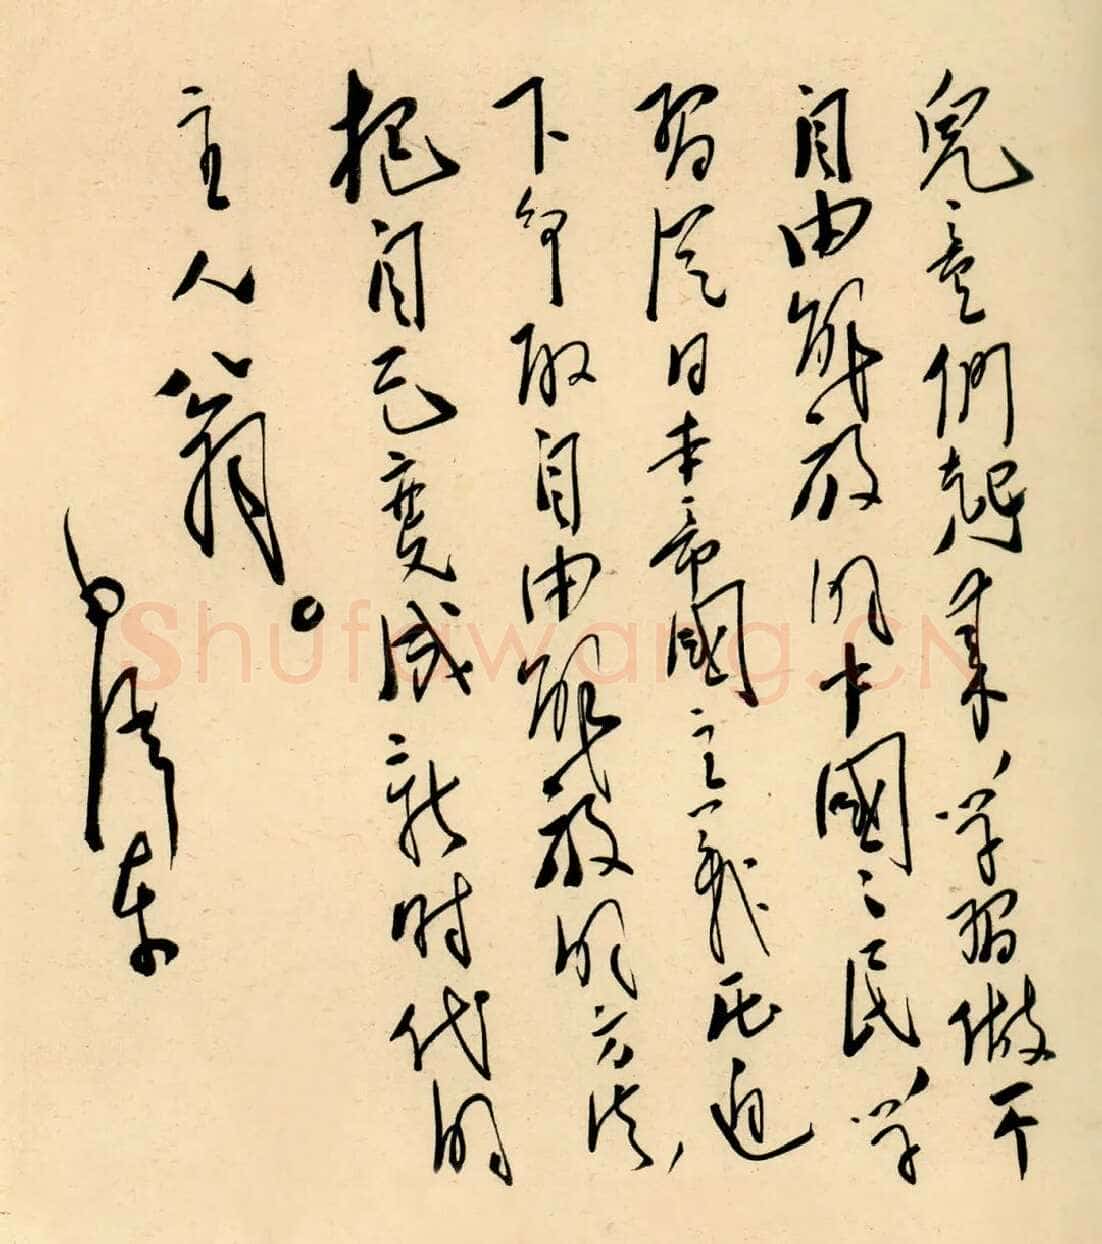 兒童們起来，学習做一个
自由解放的中國〻民，学
習從日本帝國主義压迫
下争取自由解放的方法，
把自己變成新时代的
主人翁。
毛澤东
Shufawang.CN